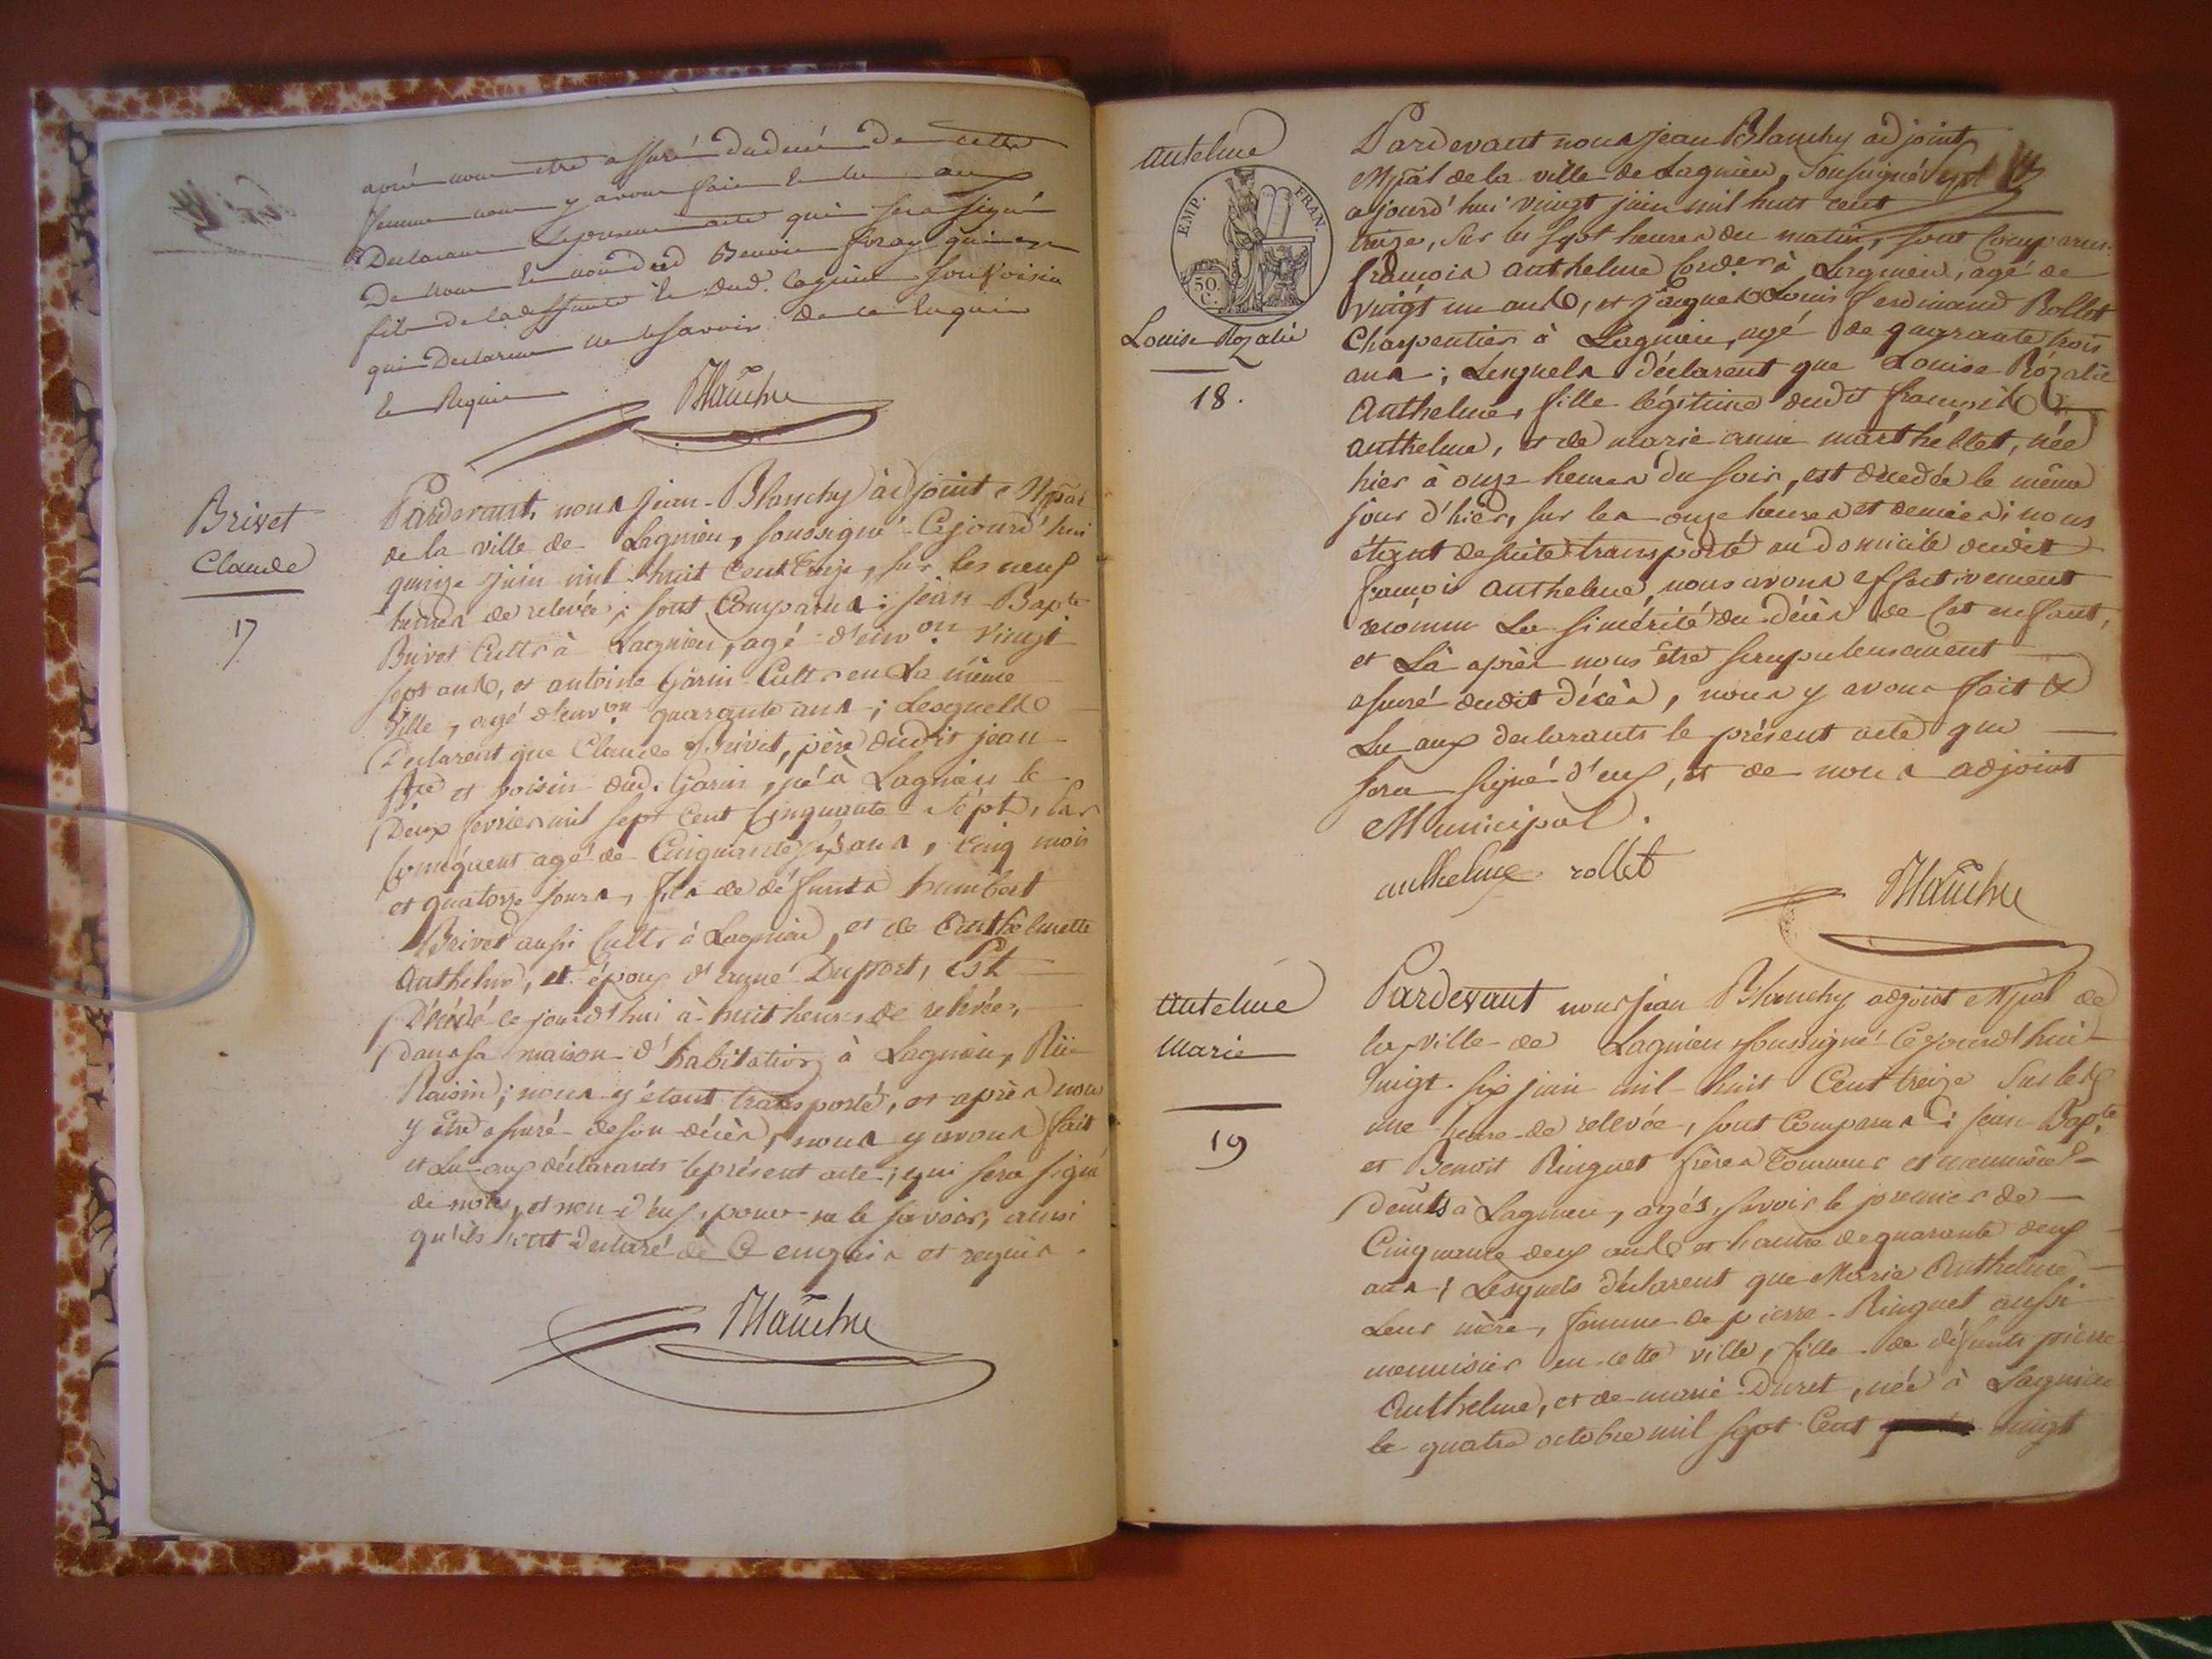 après nous être assuré dudécès de cette
femme nous y avons fait et lu aux
Declarans le présent acte qui sera signé
De nous le nommé Benoit foray qui est
fils de la deffunte le dud. Caquin son Voisin
qui Declarent ne le savoir de ce Enquis
le Requis
Blanchy
Brivet
Claude
17
Pardevant, nous jean Blanchy adjoint Mpal
de la ville de Lagnieu, soussigné Cejourd'hui
quinze juin mil huit Cent treize, sur les neuf
heures de relevée; sont Comparus; jean Bapte
Brivet Cultr à Lagnieu, agé d'environ Vingt
sept ans, et antoine Garin Cultr en La même
Ville, agé d'environ quarante ans; Lesquels
Declarent que Claude Brivet, père dudit jean
Bte et voisin dud. Garin, né à Lagnieu le
Deux fevrier mil sept Cent Cinquante Sept, Par
Conséquent agé de Cinquante six ans, cinq mois
et quatorze jours, fils de défunts humbert
Brivet aussi Cultr à Lagnieu, et de Anthelmette
Anthelme, et époux d'anne Duport, Est
Décédé ce jourd'hui à huit heures de relevée,
Dans sa maison d'habitation à Lagnieu, Rüe
Raisin; nous y étant transporté, et après nous
y être assuré de son décès, nous y avons fait
et Lu aux déclarants le présent acte; qui sera signé
de nous, et non d'eux, pour ne le savoir, ainsi
qu'ils l'ont declaré de Ce enquis et requis.
Blanchy
Antelme
EMP. FRAN.
50. C.
Louise Rozalie
18.
Pardevant nous jean Blanchy adjoint
Mpal de la ville de Lagnieu, Soussigné
ajourd'hui vingt juin mil huit cent
treize, sur les sept heures du matin, sont Comparus
françois anthelme Cordr à Lagnieu, agé de
vingt un ans, et jaques Louis ferdinand Rollet
Charpentier à Lagnieu, agé de quarante trois
ans; Lesquels déclarent que Louise Rozalie
Anthelme, fille légitime dudit françois
Anthelme, et de marie anne marthellet, née
hier à onze heures du soir, est décédée le même
jour d'hier, sur les onze heures et demies; nous
étant desuite transporté au domicile dudit
françois anthelme, nous avons effectivement
reconnu La sincérité du Décès de Cet enfant,
et Là après nous être scrupuleusement
assuré dudit Décès, nous y avons fait &
Lu aux declarants le présent acte qui
sera signé d'eux, et de nous adjoint
Municipal.
anthelme rollet
Blanchy
Antelme
Marie
19
Pardevant nous jean Blanchy adjoint Mpal de
la Ville de Lagnieu soussigné Cejourd'hui
vingt six juin mil huit Cent treize Sur les
une heure de relevée, sont Comparus: jean Bapte
et Benoit Ringuet frères Tourneur et menuisier
demts à Lagnieu, agés, savoir le premier de
Cinquante deux ans et l'autre de quarante deux
ans; Lesquels déclarent que Marie Anthelme
Leur mère, femme de pierre Ringuet aussi
menuisier en cette ville, fille de défunts pierre
Anthelme, et de marie Duret, née à Lagnieu
le quatre octobre mil sept Cent vingt